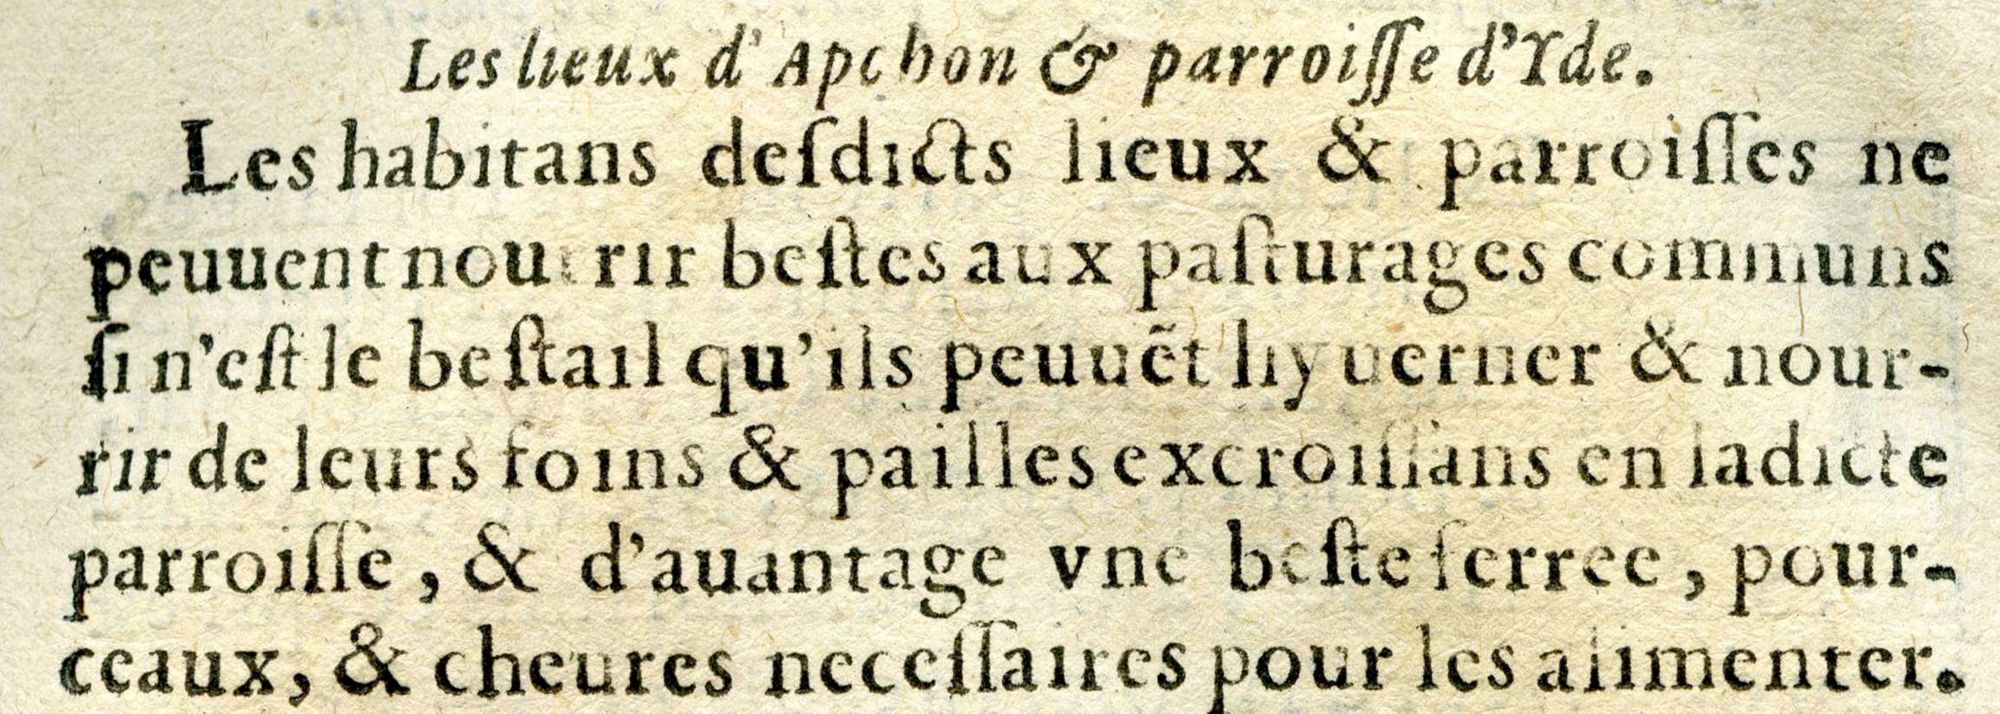 Les lieux d'Apchon & parroiſſe d'Yde.
Les habitans deſdicts lieux & parroiſſes ne
peuuent nourrir beſtes aux paſturages communs
ſi n'eſt le beſtail qu'ils peuuẽt hyuerner & nour-
rir de leurs foins & pailles excroiſſans en ladicte
parroiſſe, & d'auantage vne beſte ferree, pour-
ceaux, & cheures neceſſaires pour les alimenter.